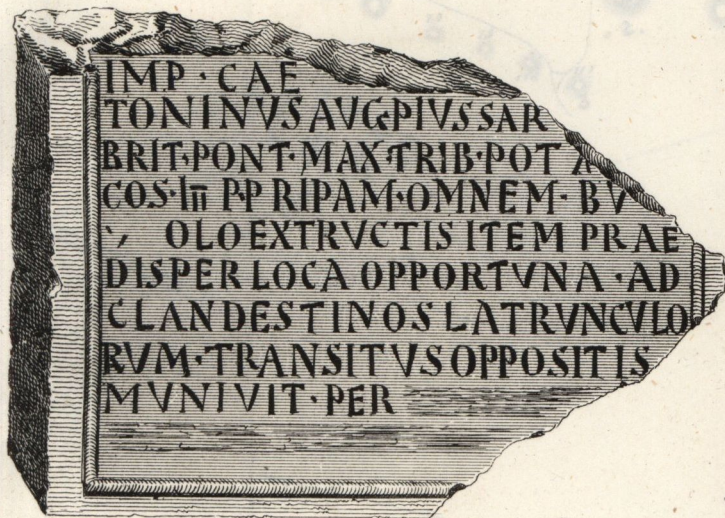 IMP · CAE
TONINVS AVG·PIVS SAR
BRIT·PONT·MAX·TRIB·POT X
COS·IIII P·P RIPAM·OMNEM· BV
OLO EXTRVCTIS ITEM PRAE
DIS PER LOCA OPPORTVNA · AD
CLANDESTINOS LATRVNCVLO
RVM·TRANSITVS OPPOSITIS
MVNIVIT·PER